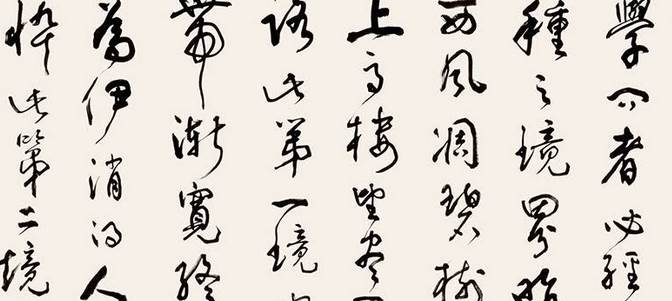 學問者必經
種之境界昨
西風凋碧樹
上高樓望盡
路此第一境
帶漸寬終
為伊消得人
悴此第二境